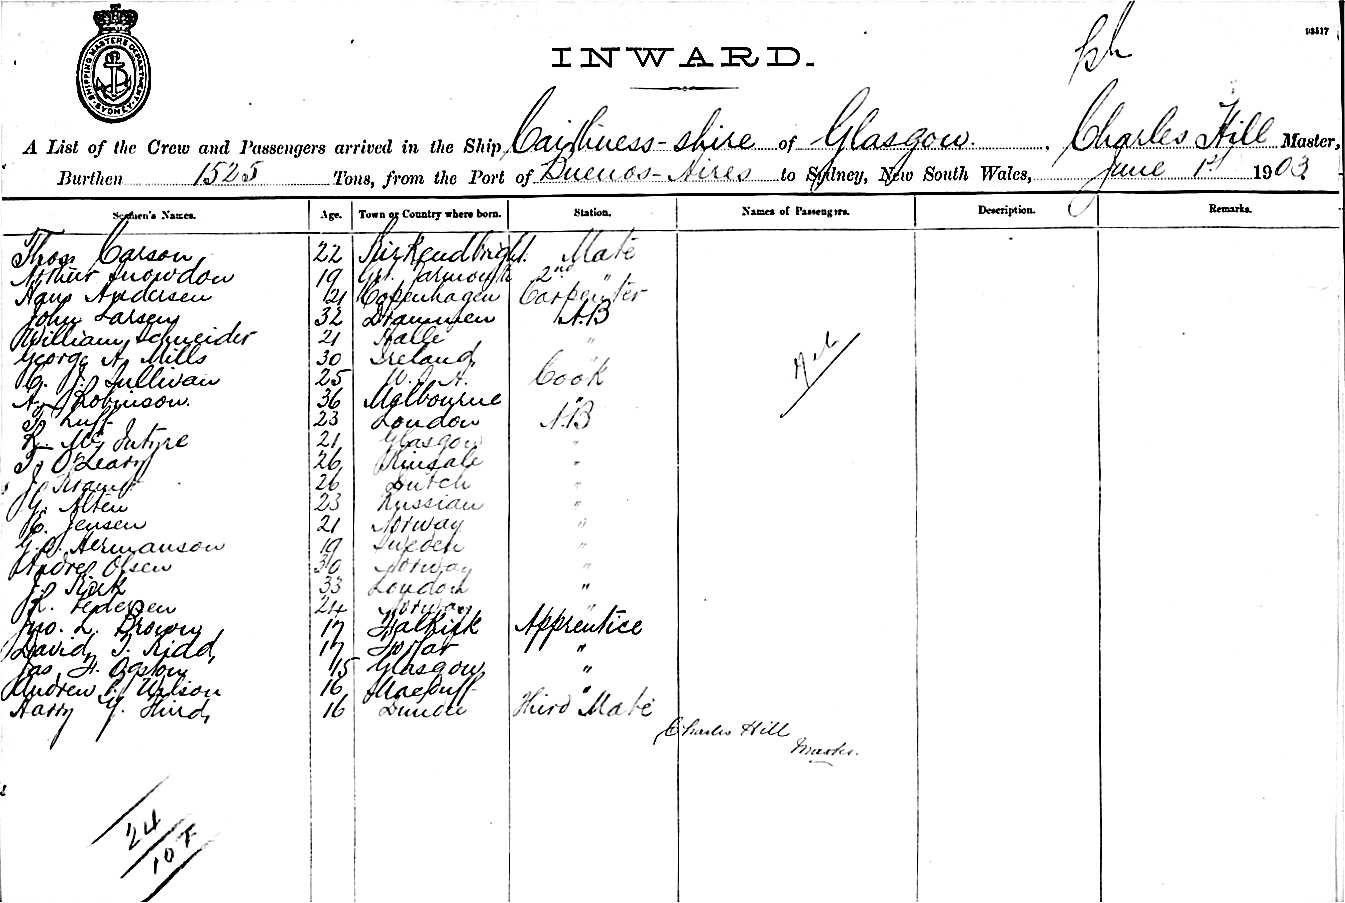 93517
INWARD.
SHIPPING MASTERS DEPARTMENT SYDNEY
A List of the Crew and Passengers arrived in the Ship Caithness-shire of Glasgow. Charles Hill Master,
Burthen 1525 Tons, from the Port of Buenos-Aires to Sydney, New South Wales, June 1st 1903
Seamen's Names. Age. Town or Country where born. Station. Names of Passengers. Description. Remarks.
Thos Carson 22 Kirkcudbright. Mate
Arthur Snowdon 19 Grt. Yarmouth 2nd "
Hans Andersen 21 Copenhagen Carpenter
John Larsen 32 Drammen A.B
William Schneider 21 Halle "
George A. Mills 30 Ireland "
C. J. Sullivan 25 U.S.A. Cook
A. Robinson. 36 Melbourne "
Luff 23 London A.B
Mc Intyre 21 Glasgow "
T. O'Leary 26 Kinsale "
J. 26 Dutch "
G. Alten 23 Russian "
C. Jensen 21 Norway "
G. Hermanson 19 Sweden "
Andrea Olsen 30 Norway "
J. Kirk 33 London "
K. Pedersen 24 Norway "
Jno. L. Brown 17 Falkirk Apprentice
David T. Kidd 17 Forfar "
Jas. H. Ogston 15 Glasgow "
Andrew Wilson 16 Macduff "
Harry Y. Hird 16 Dundee Third Mate
Charles Hill
Master.
24
10 F